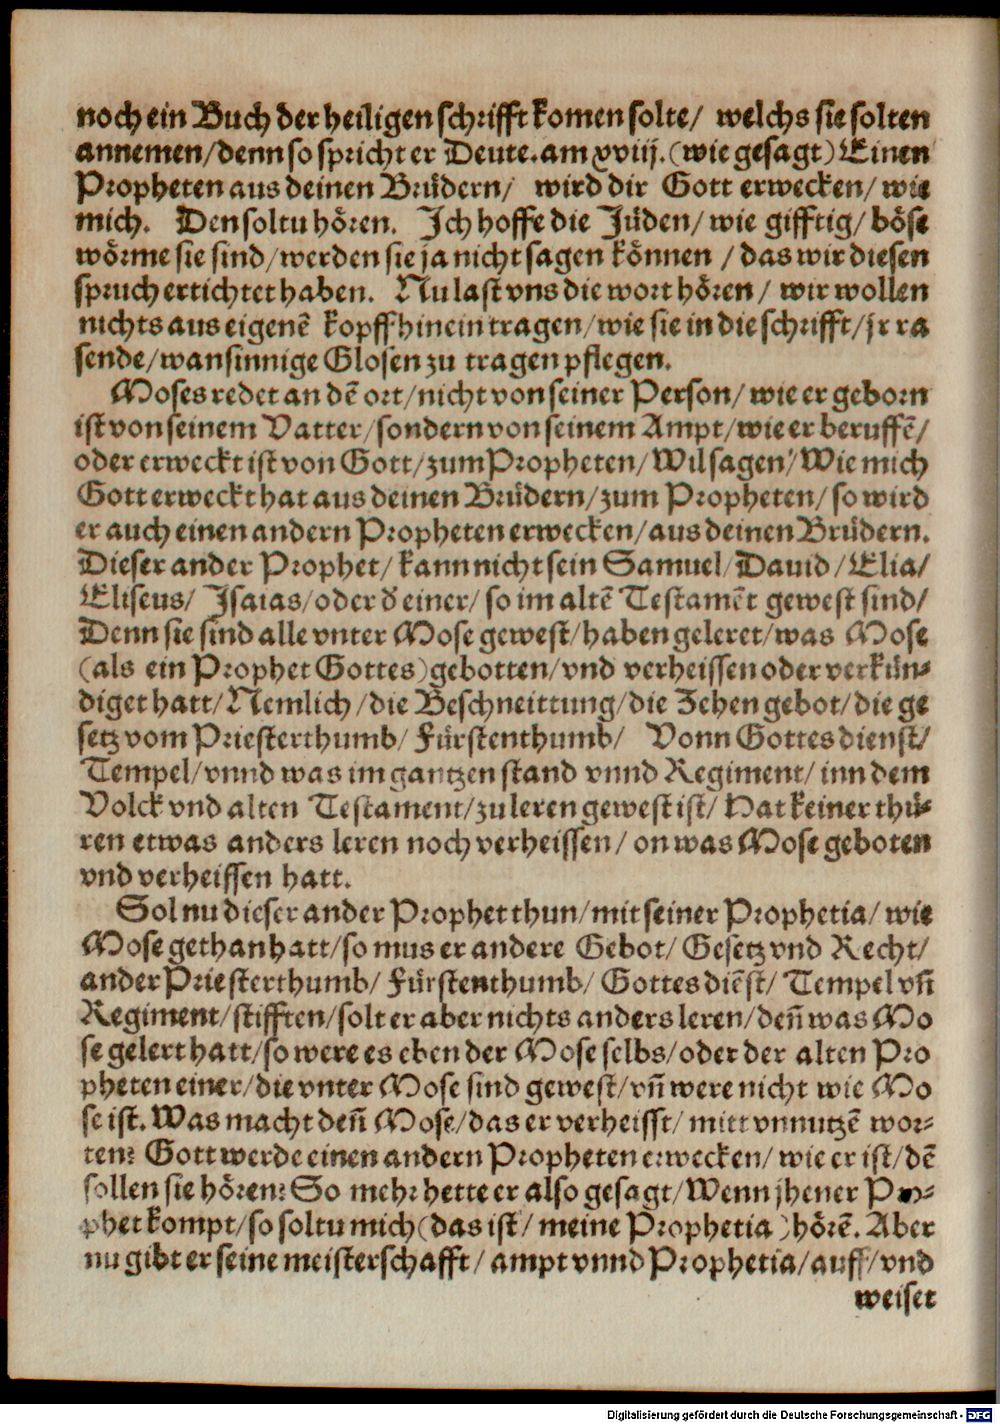 noch ein Buch der heiligen schrifft komen solte/ welchs sie solten
annemen/denn so spricht er Deute.am xviij.(wie gesagt) Einen
Propheten aus deinen Brüdern/ wird dir Gott erwecken/ wie
mich. Den soltu hören. Ich hoffe die Jüden/ wie gifftig/ böse
wörme sie sind/werden sie ja nicht sagen können / das wir diesen
spruch ertichtet haben. Nu last vns die wort hören / wir wollen
nichts aus eigenē kopff hinein tragen/wie sie in die schrifft/jr ra
sende/wansinnige Glosen zu tragen pflegen.
Moses redet an dē ort/nicht von seiner Person/ wie er geborn
ist von seinem Vatter/sondern von seinem Ampt/wie er beruffē/
oder erweckt ist von Gott/zum Propheten/Wil sagen/Wie mich
Gott erweckt hat aus deinen Brüdern/zum Propheten/so wird
er auch einen andern Propheten erwecken/aus deinen Brüdern.
Dieser ander Prophet/ kann nicht sein Samuel/Dauid/Elia/
Eliseus/ Isaias/oder d' einer/ so im altē Testamēt gewest sind/
Denn sie sind alle vnter Mose gewest/haben geleret/was Mose
(als ein Prophet Gottes)gebotten/vnd verheissen oder verkün-
diget hatt/Nemlich/die Beschneittung/die Zehen gebot/die ge
setz vom Priesterthumb/ Fürstenthumb/ Vonn Gottes dienst/
Tempel/vnnd was im gantzen stand vnnd Regiment/ inn dem
Volck vnd alten Testament/zu leren gewest ist/ Hat keiner thü-
ren etwas anders leren noch verheissen/ on was Mose geboten
vnd verheissen hatt.
Sol nu dieser ander Prophet thun/mit seiner Prophetia/ wie
Mose gethan hatt/so mus er andere Gebot/ Gesetz vnd Recht/
ander Priesterthumb/ Fürstenthumb/ Gottes diēst/ Tempel vñ
Regiment/stifften/solt er aber nichts anders leren/deñ was Mo
se gelert hatt/so were es eben der Mose selbs/oder der alten Pro
pheten einer/die vnter Mose sind gewest/vñ were nicht wie Mo
se ist. Was macht deñ Mose/das er verheisst/ mitt vnnutzē wor-
ten? Gott werde einen andern Propheten erwecken/ wie er ist/dē
sollen sie hören? So mehr hette er also gesagt/Wenn jhener Pro-
phet kompt/so soltu mich(das ist/ meine Prophetia)hörē. Aber
nu gibt er seine meisterschafft/ ampt vnnd Prophetia/auff/vnd
weiset
Digitalisierung gefördert durch die Deutsche Forschungsgemeinschaft - DFG